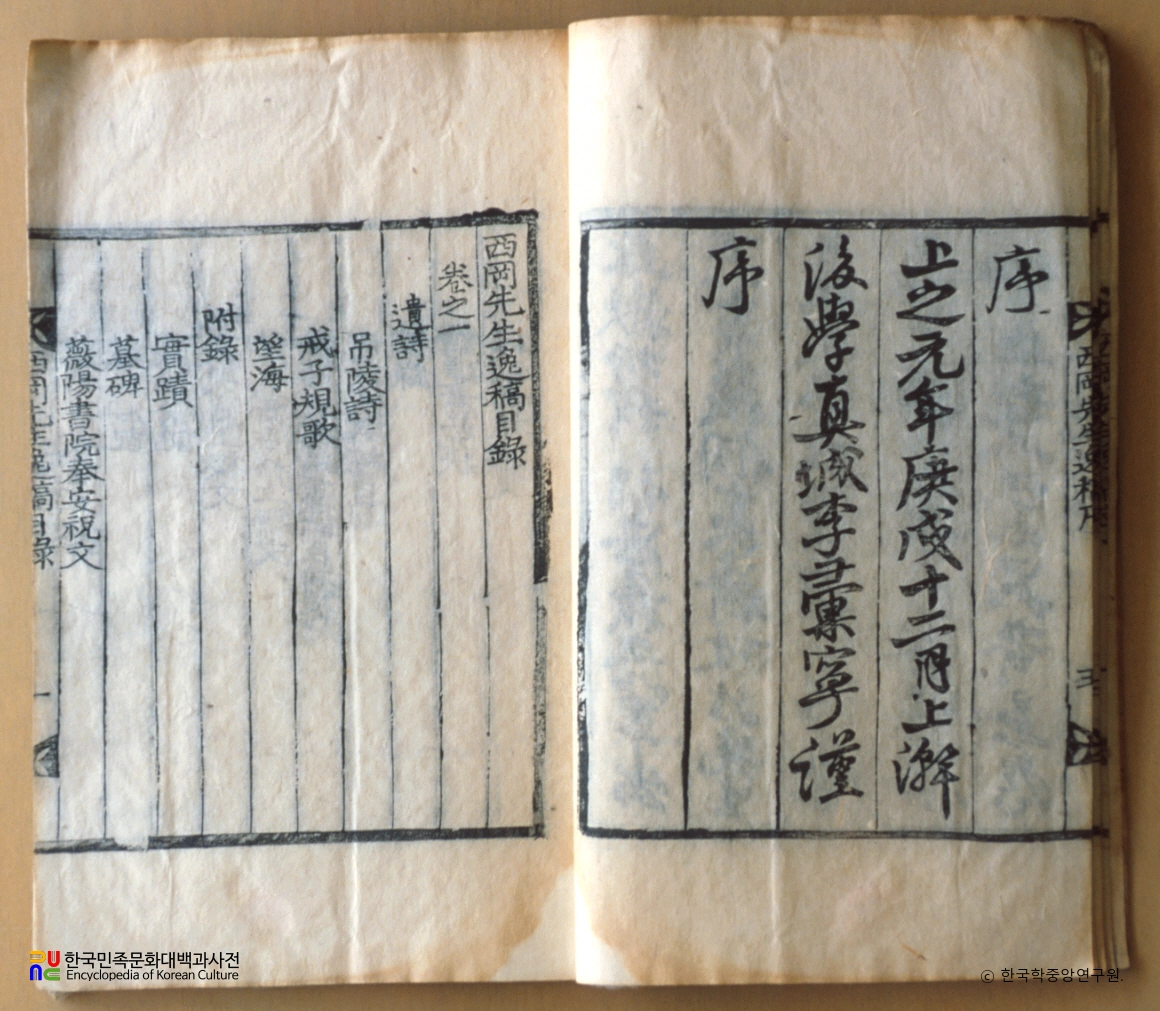 西岡先生逸稿序
五
序
上之元年庚戌十二月上澣
後學真城李彙寧謹
序
西岡先生逸稿目錄
卷之一
遺詩
吊陵詩
戒子規歌
望海
附錄
實蹟
墓碑
薇陽書院奉安祝文
西岡先生逸稿目錄
一
한국민족문화대백과사전
Encyclopedia of Korean Culture
ⓒ 한국학중앙연구원.